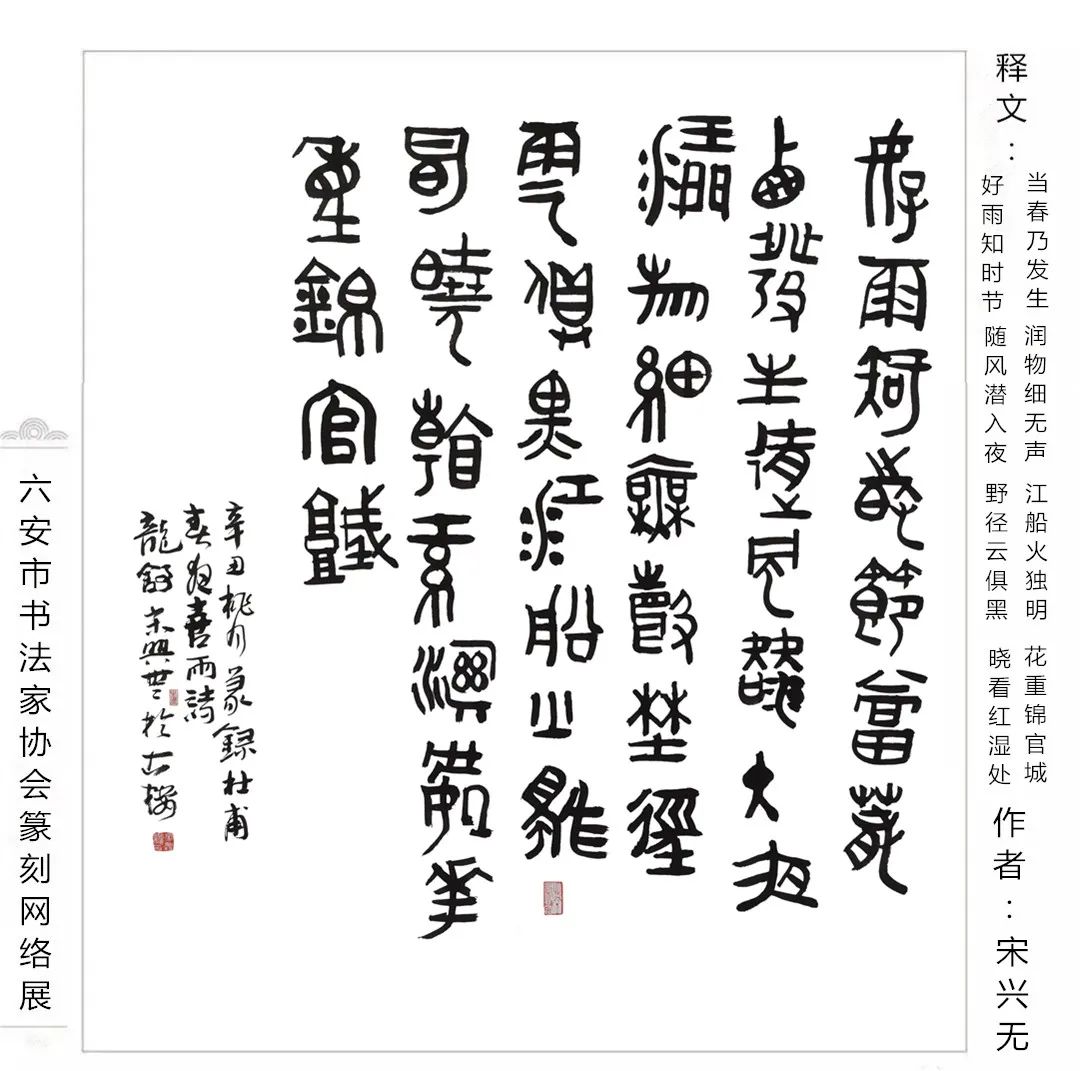 释文：
好雨知时节 当春乃发生
随风潜入夜 润物细无声
野径云俱黑 江船火独明
晓看红湿处 花重锦官城
作者：宋兴无
好雨知時節當春
乃發生隨風潛入夜
潤物細無聲野徑
雲俱黑江船火獨
明曉看紅濕處華
重錦官城
辛丑桃月篆録杜甫
春夜喜雨詩
龍舒宋興無於古
六安市书法家协会篆刻网络展